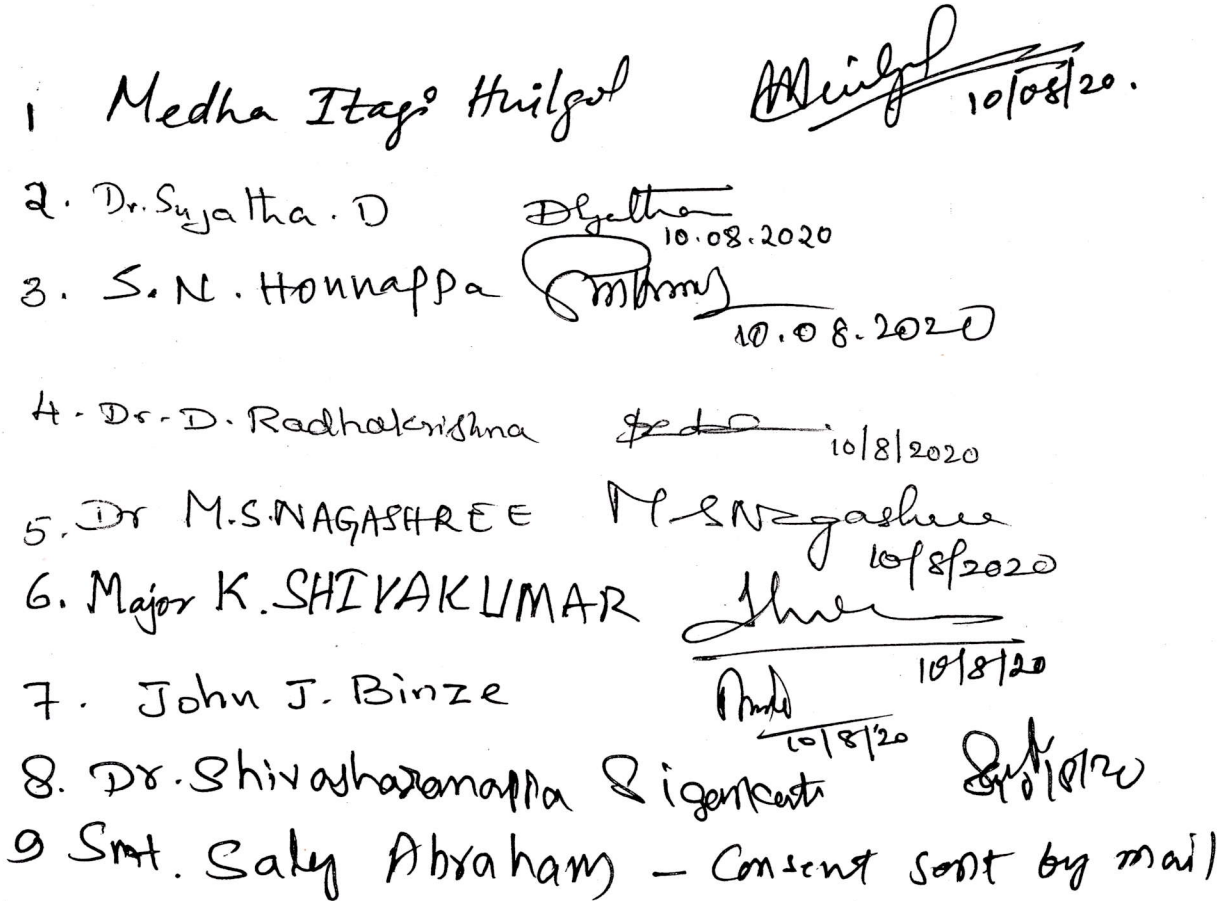 1 Medha Itagi Huilgol 10/08/20.
2. Dr. Sujatha. D
10.08.2020
3. S. N. Honnappa
10.08.2020
4. Dr. D. Radhakrishna 10/8/2020
5. Dr M.S. NAGASHREE MSNagashree
10/8/2020
6. Major K. SHIVAKUMAR
10/8/20
7. John J. Binze
10/8/20
8. Dr. Shivasharanappa
9 Smt. Saly Abraham – Consent sent by mail